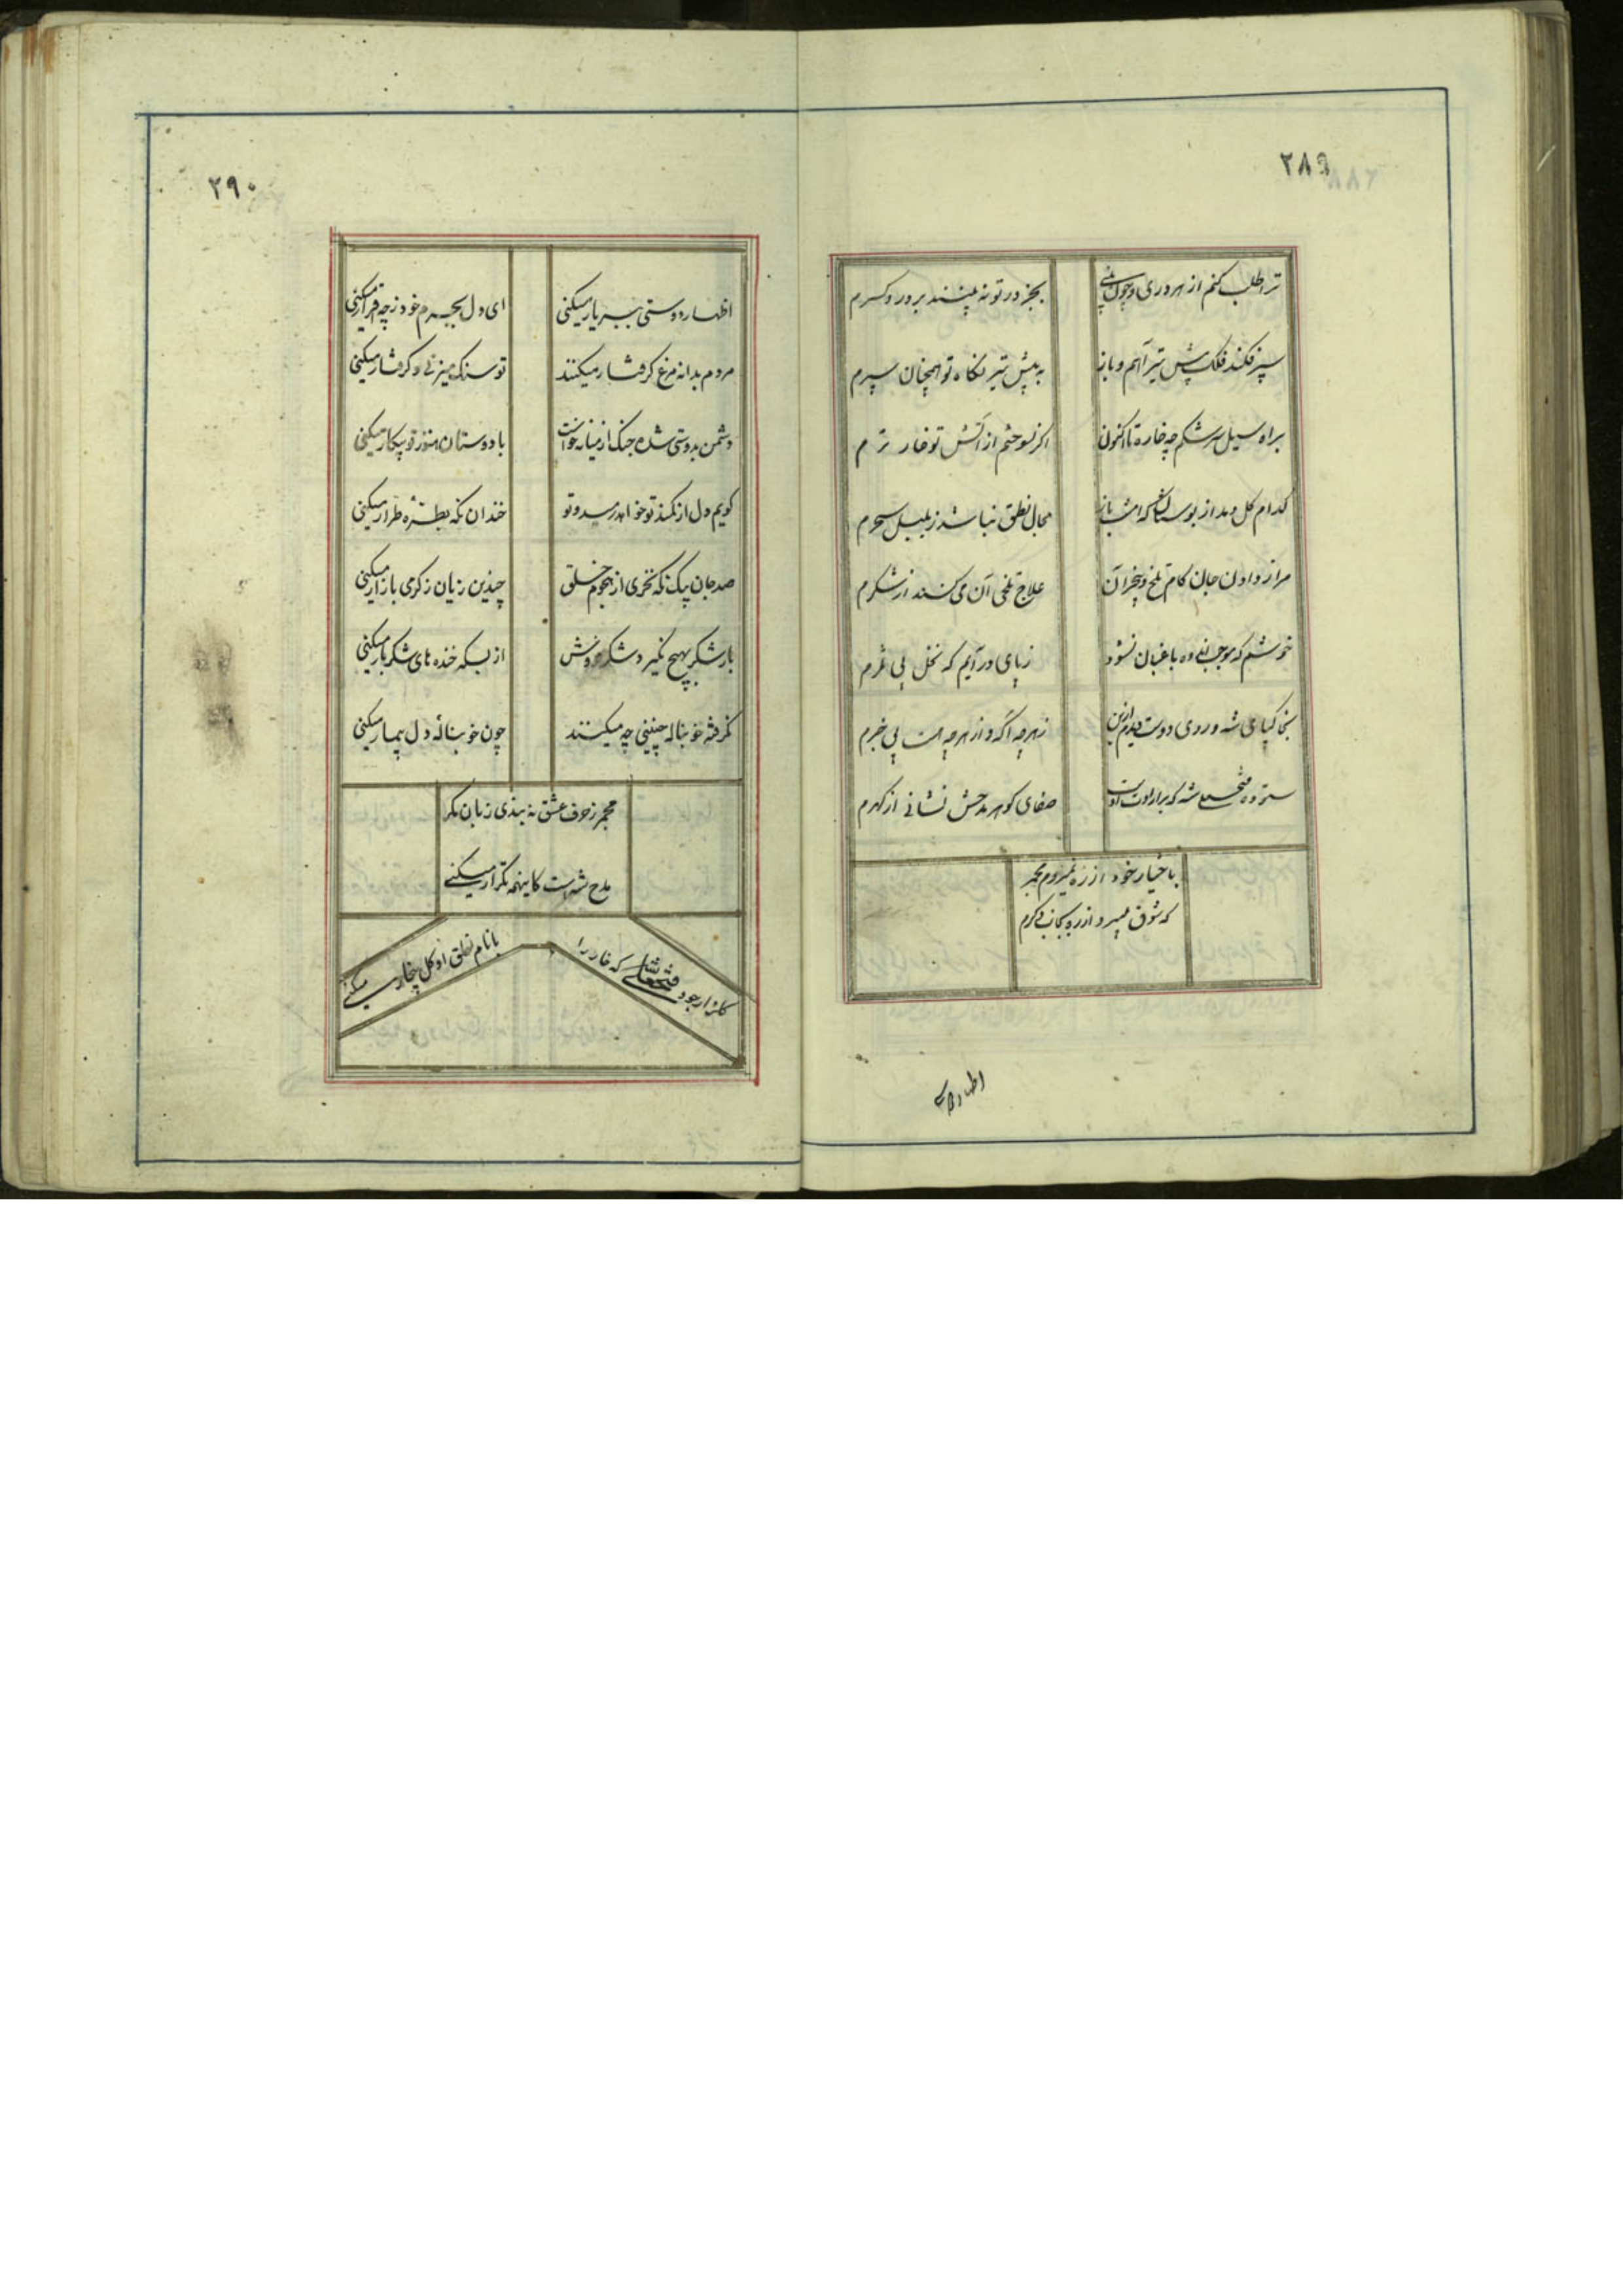 ۲۸۹
ترا طلب کنم از هر دری و چون
بجز در تو نه بینند بر در دکرم
سپر فکند فلک پیش تیر آهم و باز
به پیش تیر نکاه تو همچنان سپرم
براه سیل سرشکم چه خاره تا اکنون
اکر نسوختم از آتش تو خار ترم
کدام کل دمد از بوستان که امشب باز
مجال نطق نباشد ز بلبل سحرم
مرا ز دادن جان کام تلخ و بیخبر آن
علاج تلخی آن می کند از شکرم
خوشم که موجب اندوه باغبان نشود
ز پای در آیم که نخل بی ثمرم
بخاکپای شه و روی دوست دیدم ازین
ز هر چه اکه و از هر چه هست بی خبرم
ستوده فتحعلی شه که بر ارادت اوست
صفای کوهر مدحش نشانی از کهرم
باختیار خود از ره نمیروم مجمر
که شوق میبرد از ره بجانب دکرم
اظهار دوستی
۲۹۰
اظهار دوستی ببر یار میکنی
ای دل بجرم خود ز چه اقرار میکنی
مردم بدانه مرغ کرفتار میکنند
تو سنک میزنی و کرفتار میکنی
دشمن بدوستی شد و جنک از میانه خواست
با دوستان هنوز تو پیکار میکنی
کویم دل از کمند تو خواهد رمید و تو
خندان نکه بطره طرار میکنی
صد جان بیک نکه نخری از هجوم خلق
چندین زیان ز کرمی بازار میکنی
بار شکر بهیچ نکیرد شکر فروش
از بسکه خنده های شکر بار میکنی
نکرفته خو بناله چنینی چه میکنند
چون خو بنالهٔ دل بیمار میکنی
مجمر ز حرف عشق نه بندی زبان مکر
مدح شه است کاینهمه تکرار میکنی
کلزار جود فتحعلی شه که خار را
با نام نطق او کل بیخار میکنی